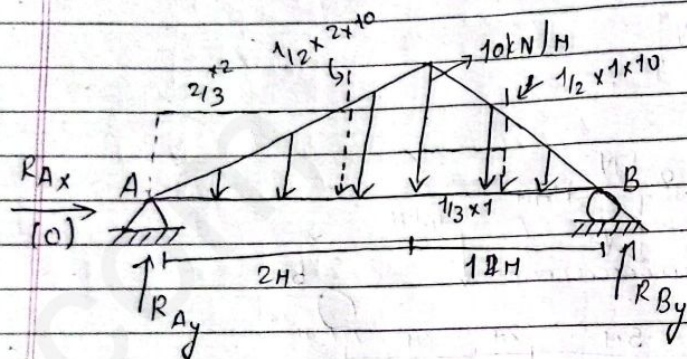 1/2 × 2×10
10kN/M
2/3 ×2
1/2 ×1×10
RAx
A
B
(0)
1/3×1
2M
1M
RAy
RBy